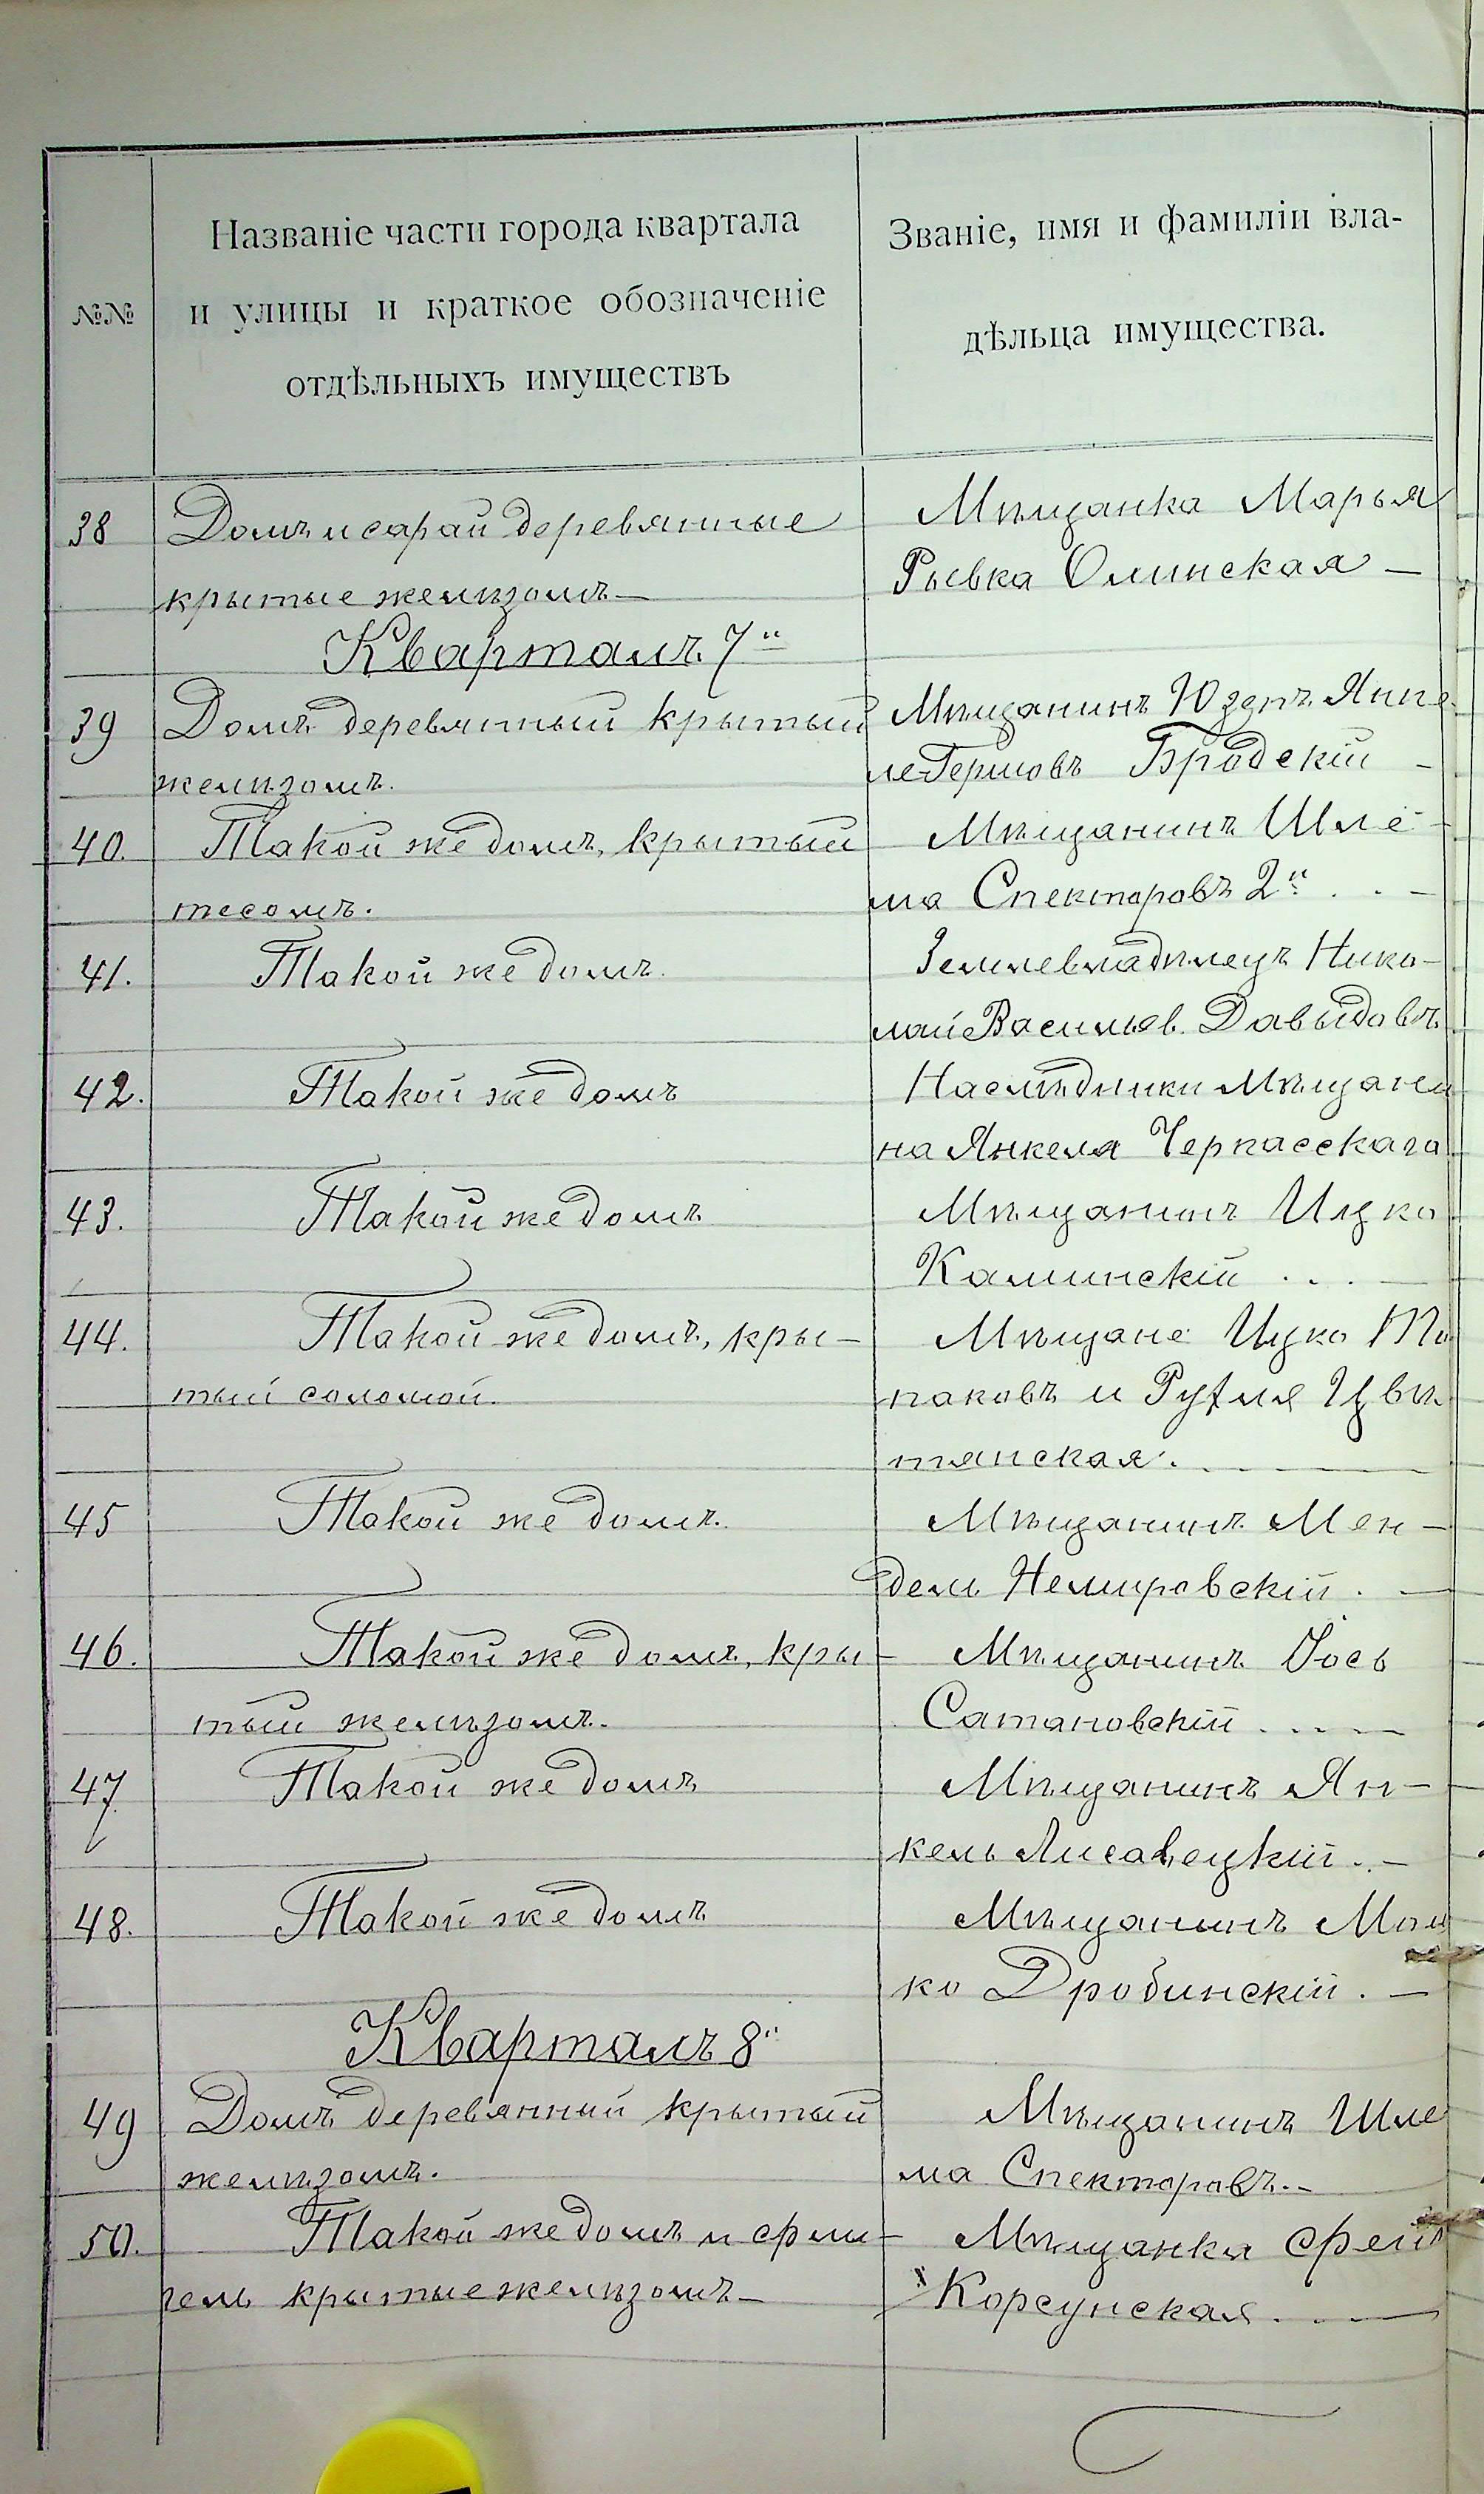 №№
Названіе части города квартала
и улицы и краткое обозначеніе
отдѣльныхъ имуществъ
Званіе, имя и фамиліи вла-
дѣльца имущества.
38
Домъ и сарай деревянные
крытые желѣзомъ —
Мѣщанка Марья
Рывка Олинская —
Кварталъ 7й
39
Домъ деревянный крытый
желѣзомъ.
Мѣщанинъ Юзепъ Янке
ле Гершовъ Бродскій -
40.
Такой же домъ, крытый
тесомъ.
Мѣщанинъ Шле-
ма Спекторовъ 2й . . -
41.
Такой же домъ.
Землевладѣлецъ Нико-
лай Васильев. Давыдовъ
42.
Такой же домъ
Наслѣдники Мѣщани
на Янкеля Черкасскаго
43.
Такой же домъ
Мѣщанинъ Ицко
Каминскій . . . -
44.
Такой же домъ, кры-
тый соломой.
Мѣщане Ицко То
паковъ и Рухля Цвѣ
тянская. —
45
Такой же домъ.
Мѣщанинъ Мен-
дель Немировскій . —
46.
Такой же домъ, кры-
тый желѣзомъ.
Мѣщанинъ Іось
Сатановскій . . . —
47
Такой же домъ
Мѣщанинъ Ян-
кель Лисавецкій . . -
48.
Такой же домъ
Мѣщанинъ Мош
ко Дробинскій . —
Кварталъ 8й
49
Домъ деревянный крытый
желѣзомъ.
Мѣщанинъ Шле
ма Спекторовъ. . -
50.
Такой же домъ и фли-
гель крытые желѣзомъ —
Мѣщанка
Корсунская . . —